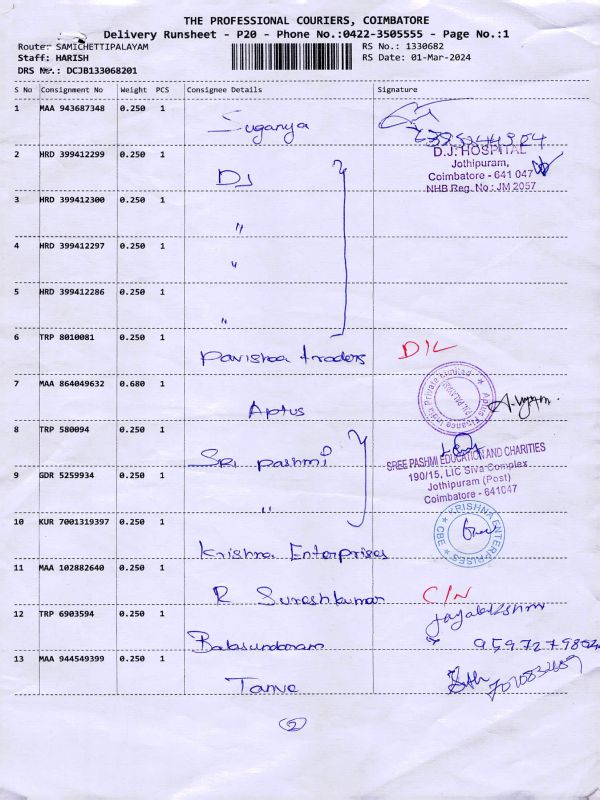 THE PROFESSIONAL COURIERS, COIMBATORE
Delivery Runsheet - P20 - Phone No.:0422-3505555 - Page No.:1
Route: SAMICHETTIPALAYAM RS No.: 1330682
Staff: HARISH RS Date: 01-Mar-2024
DRS No.: DCJB133068201
S No Consignment No Weight PCS Consignee Details Signature
1 MAA 943687348 0.250 1 Suganya
2 HRD 399412299 0.250 1 DJ
D.J. HOSPITAL
Jothipuram,
Coimbatore - 641 047
NHB Reg. No : JM 2057
3 HRD 399412300 0.250 1 "
4 HRD 399412297 0.250 1 "
5 HRD 399412286 0.250 1 "
6 TRP 8010081 0.250 1 Pavishna traders D/L
7 MAA 864049632 0.680 1 Aptus
Aptus Finance India Private Limited
8 TRP 580094 0.250 1 Sri Pashmi
SREE PASHMI EDUCATION AND CHARITIES
190/15, LIC Siva Complex
Jothipuram (Post)
Coimbatore - 641047
9 GDR 5259934 0.250 1 "
10 KUR 7001319397 0.250 1 Krishna Enterprises
KRISHNA ENTERPRISES
CBE
11 MAA 102882640 0.250 1 R Sureshkumar C/N
12 TRP 6903594 0.250 1 Balasundaram Jayalakshmi
13 MAA 944549399 0.250 1 Tanve
2